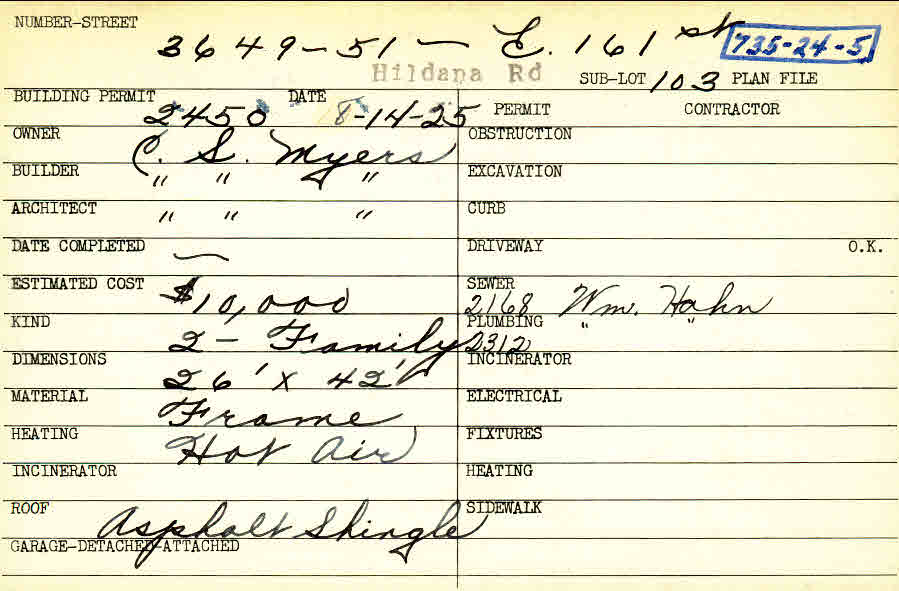 NUMBER-STREET 3649-51 - E. 161 st 735-24-5
Hildana Rd SUB-LOT 103 PLAN FILE
BUILDING PERMIT 2450 DATE 8-14-25 PERMIT CONTRACTOR
OWNER C. S. Myers OBSTRUCTION
BUILDER " " " EXCAVATION
ARCHITECT " " " CURB
DATE COMPLETED — DRIVEWAY O.K.
ESTIMATED COST $10,000 SEWER 2168 Wm. Hahn
KIND 2 - Family PLUMBING 2312 " "
DIMENSIONS 26' x 42' INCINERATOR
MATERIAL Frame ELECTRICAL
HEATING Hot Air FIXTURES
INCINERATOR HEATING
ROOF Asphalt Shingle SIDEWALK
GARAGE-DETACHED-ATTACHED